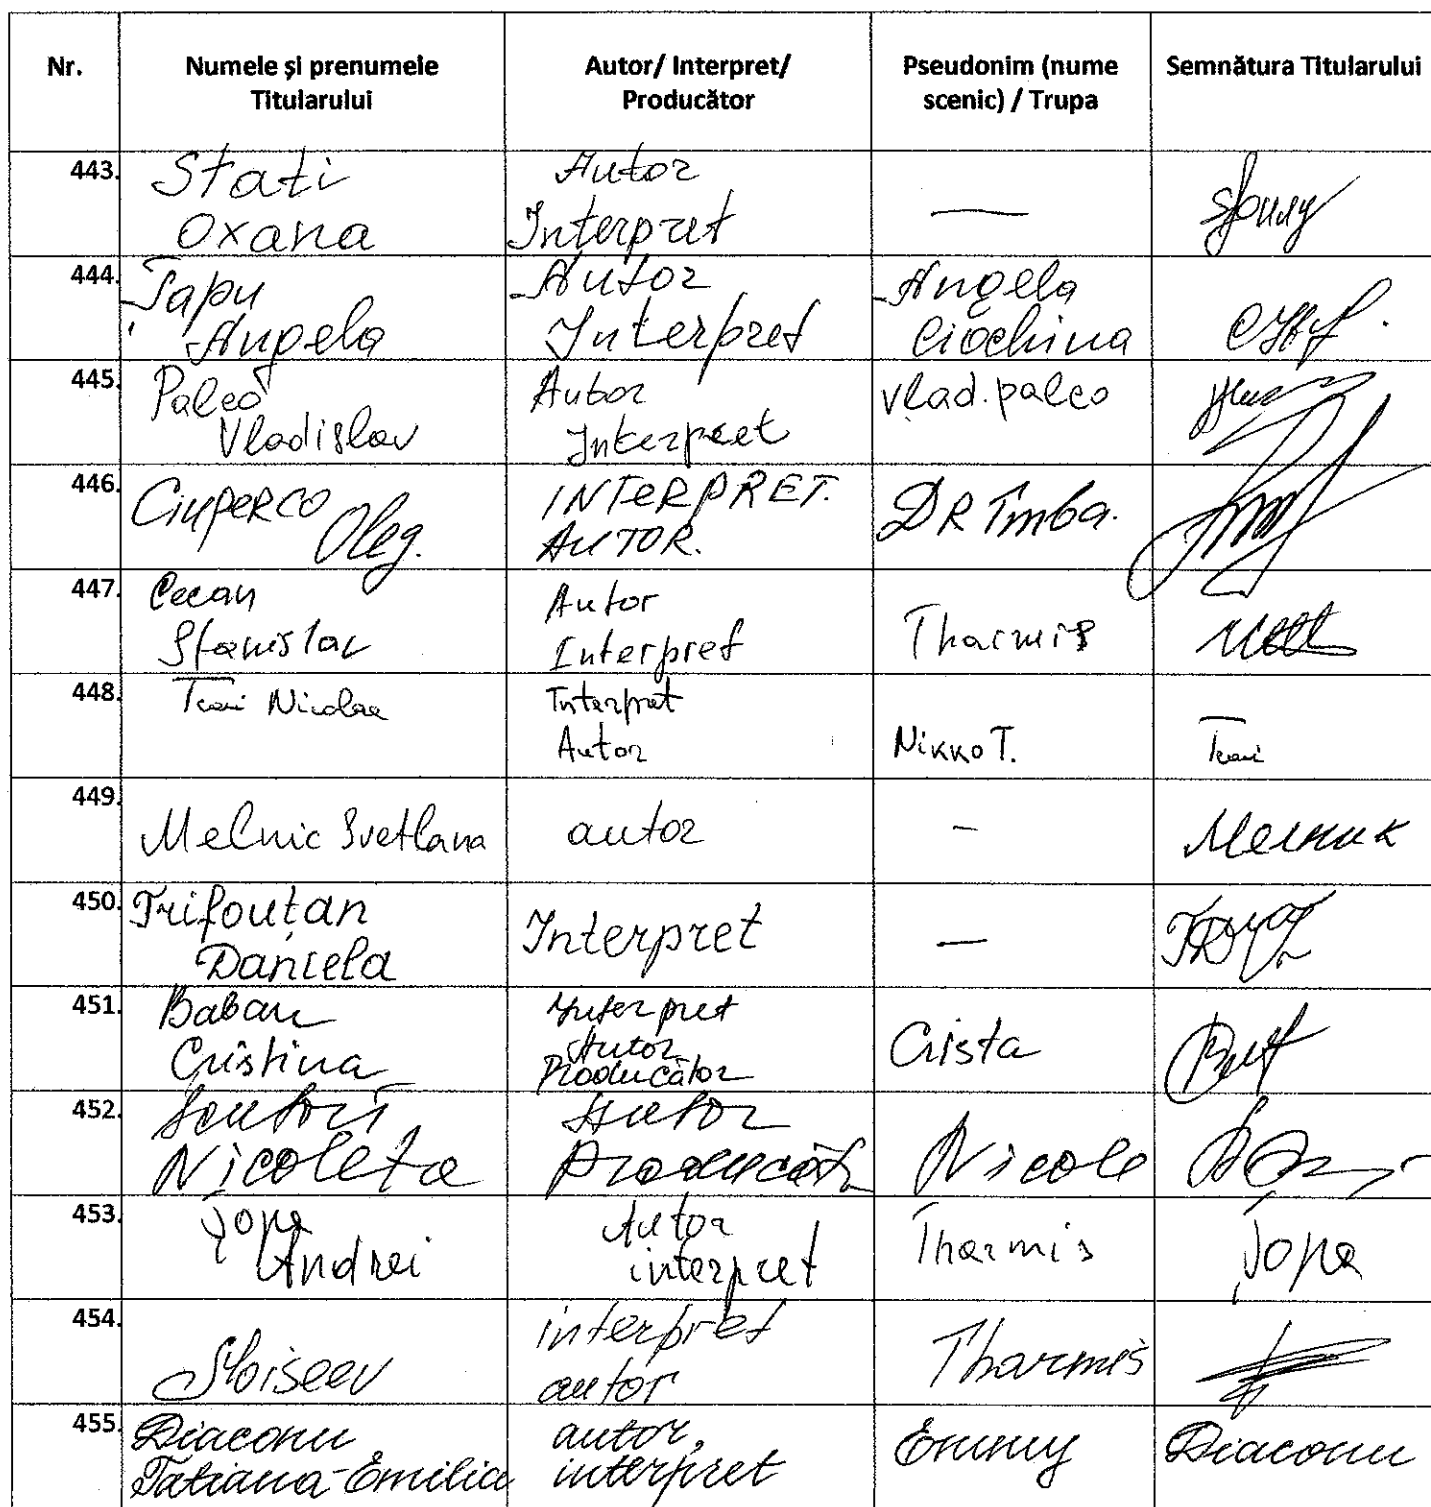 Nr.
Numele și prenumele
Titularului
Autor/ Interpret/
Producător
Pseudonim (nume
scenic) / Trupa
Semnătura Titularului
443.
Stati
Oxana
Autor
Interpret
—
444.
Țapu
Angela
Autor
Interpret
Angela
Ciochina
445.
Paleo
Vladislav
Autor
Interpret
vlad.paleo
446.
CIUPERCO Oleg.
INTERPRET.
AUTOR.
DR Tmba.
447.
Cecan
Stanislav
Autor
Interpret
Tharmis
448.
Nicolae
Interpret
Autor
Nikko T.
449.
Melnic Svetlana
autor
-
Мелник
450.
Trifouțan
Daniela
Interpret
—
451.
Baban
Cristina
Interpret
Autor
Producător
Crista
452.
Nicoleta
Autor
Producăt
Nicole
453.
Țopa
Andrei
Autor
interpret
Tharmis
Țopa
454.
Moiseev
interpret
autor
Tharmis
455.
Diaconu
Tatiana-Emilia
autor,
interpret
Emmy
Diaconu